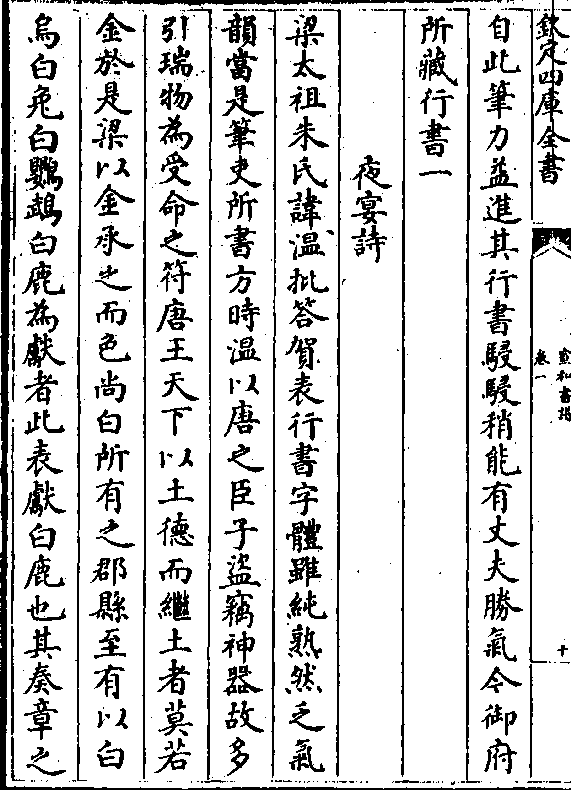 欽定四庫全書
宣和書譜
卷一
十
自此筆力益進其行書駸駸稍能有丈夫勝氣今御府
所藏行書一
夜宴詩
梁太祖朱氏諱溫批答賀表行書字體雖純熟然乏氣
韻當是筆吏所書方時溫以唐之臣子盜竊神器故多
引瑞物為受命之符唐王天下以土德而繼土者莫若
金於是梁以金承之而色尚白所有之郡縣至有以白
烏白兔白鸚鵡白鹿為獻者此表獻白鹿也其奏章之